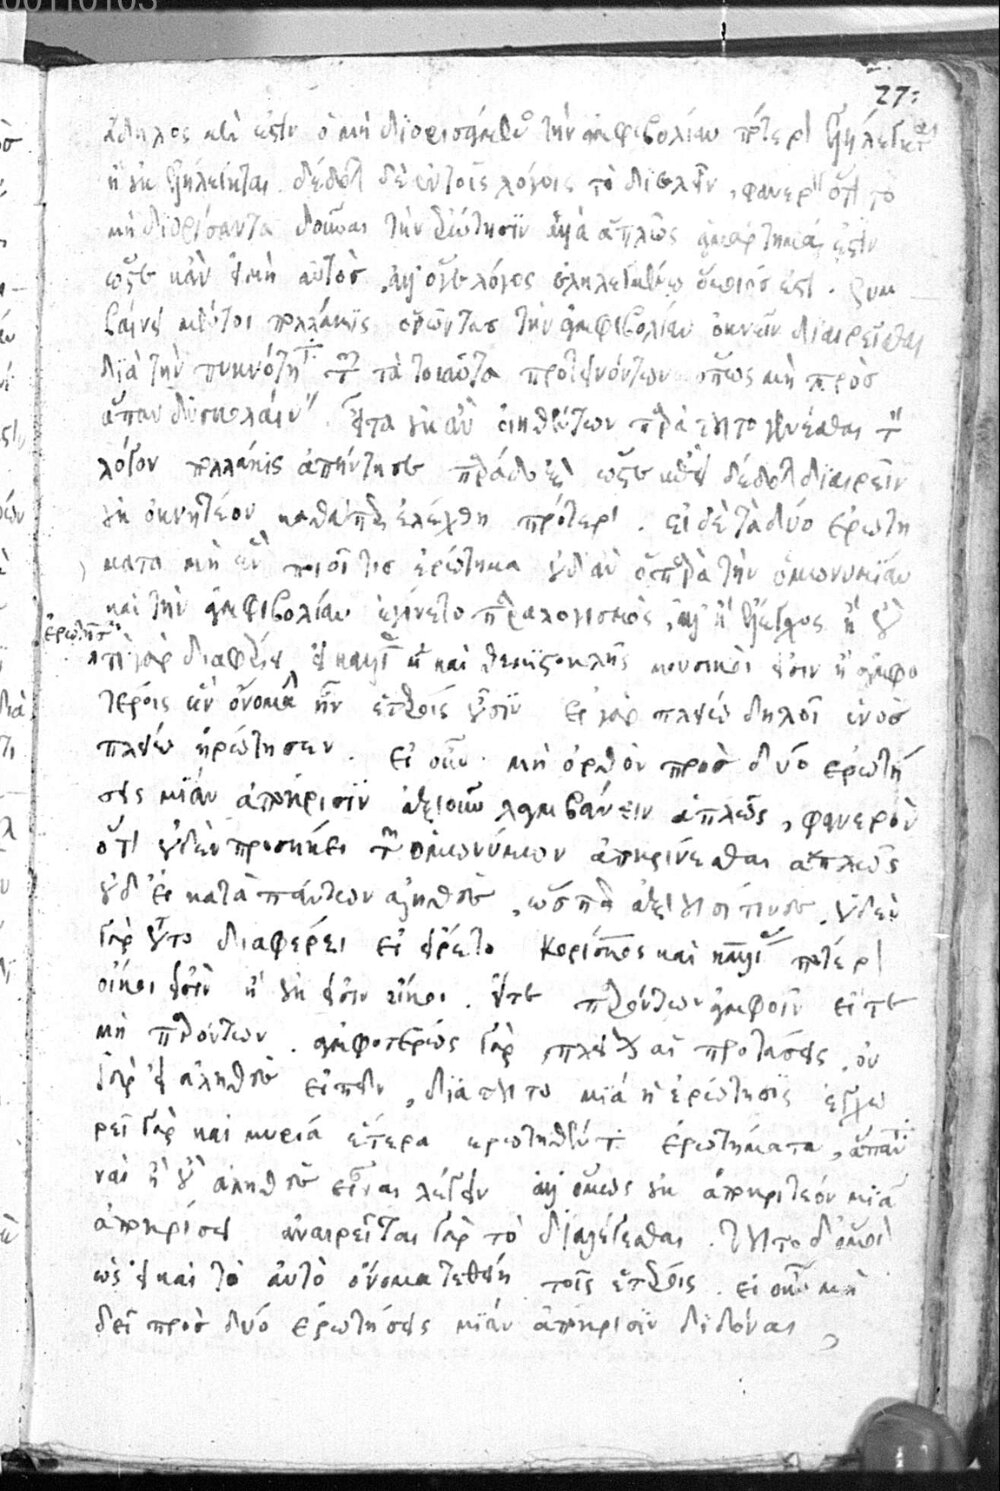 27:
ἄδηλος μὲν ἐστὶν ὁ μὴ διορισάμενος τὴν ἀμφιβολίαν πότερον ἐλήλεγκται
ἢ οὐκ ἐλήλεγκται. δέδοται δὲ ἐν τοῖς λόγοις τὸ διελεῖν, φανερὸν ὅτι τὸ
μὴ διορίσαντα δοῦναι τὴν ἐρώτησιν ἀλλὰ ἁπλῶς ἁμάρτημά ἐστιν
ὥστε κἂν εἰ μὴ αὐτὸς, ἀλλ' ὅγε λόγος ἐληλεγμένῳ ὅμοιός ἐστι. συμ
βαίνει μέντοι πολλάκις ὁρῶντας τὴν ἀμφιβολίαν ὀκνεῖν διαιρεῖσθαι
διὰ τὴν πυκνότητα τῶν τὰ τοιαῦτα προτεινόντων ὅπως μὴ πρὸς
ἅπαν δυσκολαίνειν. εἶτα οὐκ ἂν οἰηθέντων παρὰ τοῦτο γενέσθαι τὸν
λόγον πολλάκις ἀπήντησε παράδοξον ὥστε δέδοται διαιρεῖν
οὐκ ὀκνητέον καθάπερ ἐλέχθη πρότερον. εἰ δὲ τὰ δύο ἐρωτή
ματα μὴ ἓν ποιεῖ τις ἐρώτημα οὐδ' ἂν ὁ παρὰ τὴν ὁμωνυμίαν
καὶ τὴν ἀμφιβολίαν ἐγίνετο παραλογισμὸς, ἀλλ' ἢ ἔλεγχος ἢ οὔ
τί γὰρ διαφέρει εἰ καλλίας καὶ θεμιστοκλῆς μουσικοί εἰσιν ἢ ἀμφο
τέροις ἓν ὄνομα ἦν ἑτέροις οὖσιν εἰ γὰρ πλείω δηλοῖ ἑνὸς
πλείω ἠρώτησεν. εἰ οὖν μὴ ὀρθὸν πρὸς δύο ἐρωτή
σεις μίαν ἀπόκρισιν ἀξιοῦν λαμβάνειν ἁπλῶς, φανερὸν
ὅτι οὐδενὶ προσήκει τῶν ὁμωνύμων ἀποκρίνεσθαι ἁπλῶς
οὐδ' εἰ κατὰ πάντων ἀληθὲς, ὥσπερ ἀξιοῦσί τινες. οὐδὲν
γὰρ τοῦτο διαφέρει εἰ ἤρετο κορίσκος καὶ καλλίας πότερον
οἴκοι εἰσὶν ἢ οὐκ εἰσὶν οἴκοι. εἴτε παρόντων ἀμφοῖν εἴτε
μὴ παρόντων. ἀμφοτέρως γὰρ πλείους αἱ προτάσεις, οὐ
γὰρ εἰ ἀληθὲς εἰπεῖν, διὰ τοῦτο μία ἡ ἐρώτησις ἐγχω
ρεῖ γὰρ καὶ μυρία ἕτερα ἐρωτηθέντα ἐρωτήματα, ἅπαντα
ναὶ ἢ οὒ ἀληθὲς εἶναι λέγειν ἀλλ' ὅμως οὐκ ἀποκριτέον μιᾷ
ἀποκρίσει ἀναιρεῖται γὰρ τὸ διαλέγεσθαι. τοῦτο δ' ὅμοιον
ὡς εἰ καὶ τὸ αὐτὸ ὄνομα τεθείη τοῖς ἑτέροις. εἰ οὖν μὴ
δεῖ πρὸς δύο ἐρωτήσεις μίαν ἀπόκρισιν διδόναι,